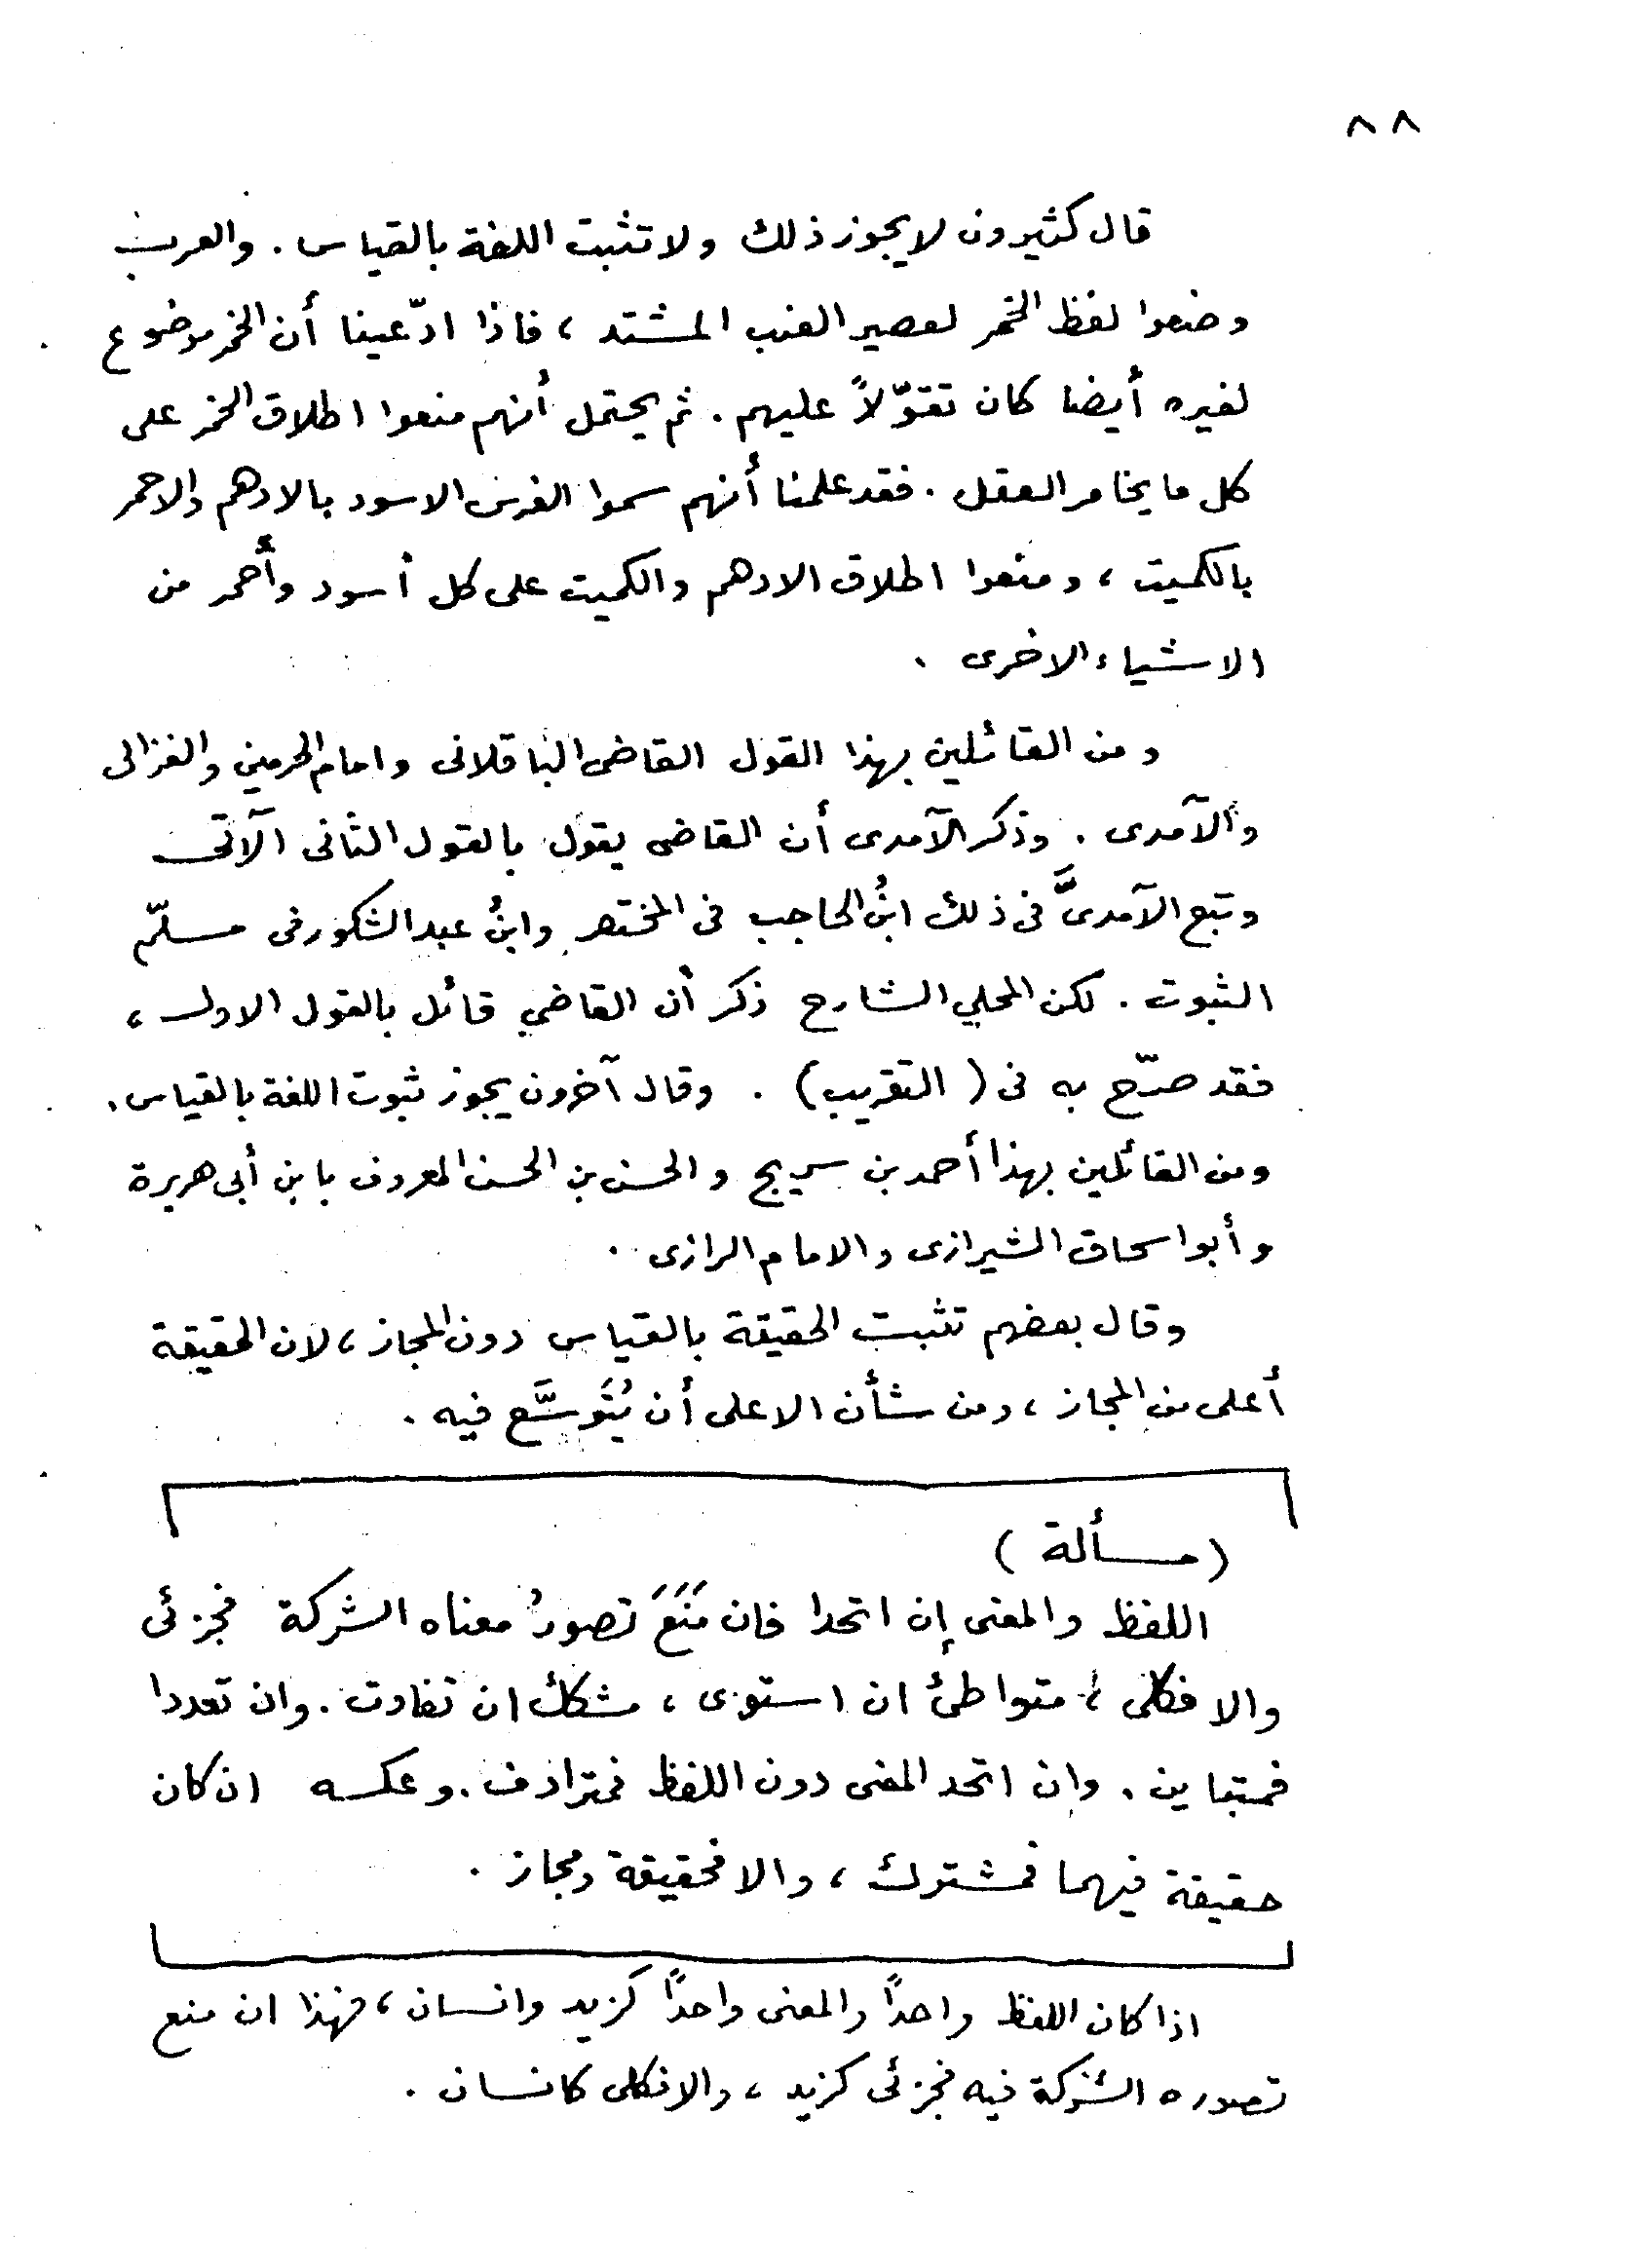 ٨٨
قال كثيرون لا يجوز ذلك ولا تثبت اللغة بالقياس . والعرب
وضعوا لفظ الخمر لعصير العنب المشتد ، فاذا ادّعينا أن الخمر موضوع
لغيره أيضا كان تقوّلاً عليهم . ثم يحتمل أنهم منعوا اطلاق الخمر على
كل ما يخامر العقل . فقد علمنا أنهم سموا الفرس الاسود بالادهم والاحمر
بالكميت ، ومنعوا اطلاق الادهم والكميت على كل أسود وأحمر من
الاشياء الاخرى .
ومن القائلين بهذا القول القاضى الباقلانى وامام الحرمين والغزالى
والآمدى . وذكر الآمدى أن القاضى يقول بالقول الثانى الآتى
وتبع الآمدىَّ فى ذلك ابنُ الحاجب فى المختصر وابنُ عبد الشكور فى مسلّم
الثبوت . لكن المحلي الشارح ذكر أن القاضي قائل بالقول الاول ،
فقد صرّح به فى ( التقريب ) . وقال آخرون يجوز ثبوت اللغة بالقياس .
ومن القائلين بهذا أحمد بن سريج والحسن بن الحسن المعروف بابن أبى هريرة
وأبو اسحاق الشيرازى والامام الرازى .
وقال بعضهم تثبت الحقيقة بالقياس دون المجاز ، لان الحقيقة
أعلى من المجاز ، ومن شأن الاعلى أن يُتَوسَّع فيه .
( مسألة )
اللفظ والمعنى إن اتحدا فان مَنَعَ تصورُ معناه الشركة فجزئى
والا فكلى ، متواطئ ان استوى ، مشكك ان تفاوت . وان تعددا
فمتباين . وان اتحد المعنى دون اللفظ فمترادف . وعكسه ان كان
حقيقة فيهما فمشترك ، والا فحقيقة ومجاز .
اذا كان اللفظ واحداً والمعنى واحداً كزيد وانسان ، فهذا ان منع
تصوره الشركة فيه فجزئى كزيد ، والا فكلى كانسان .